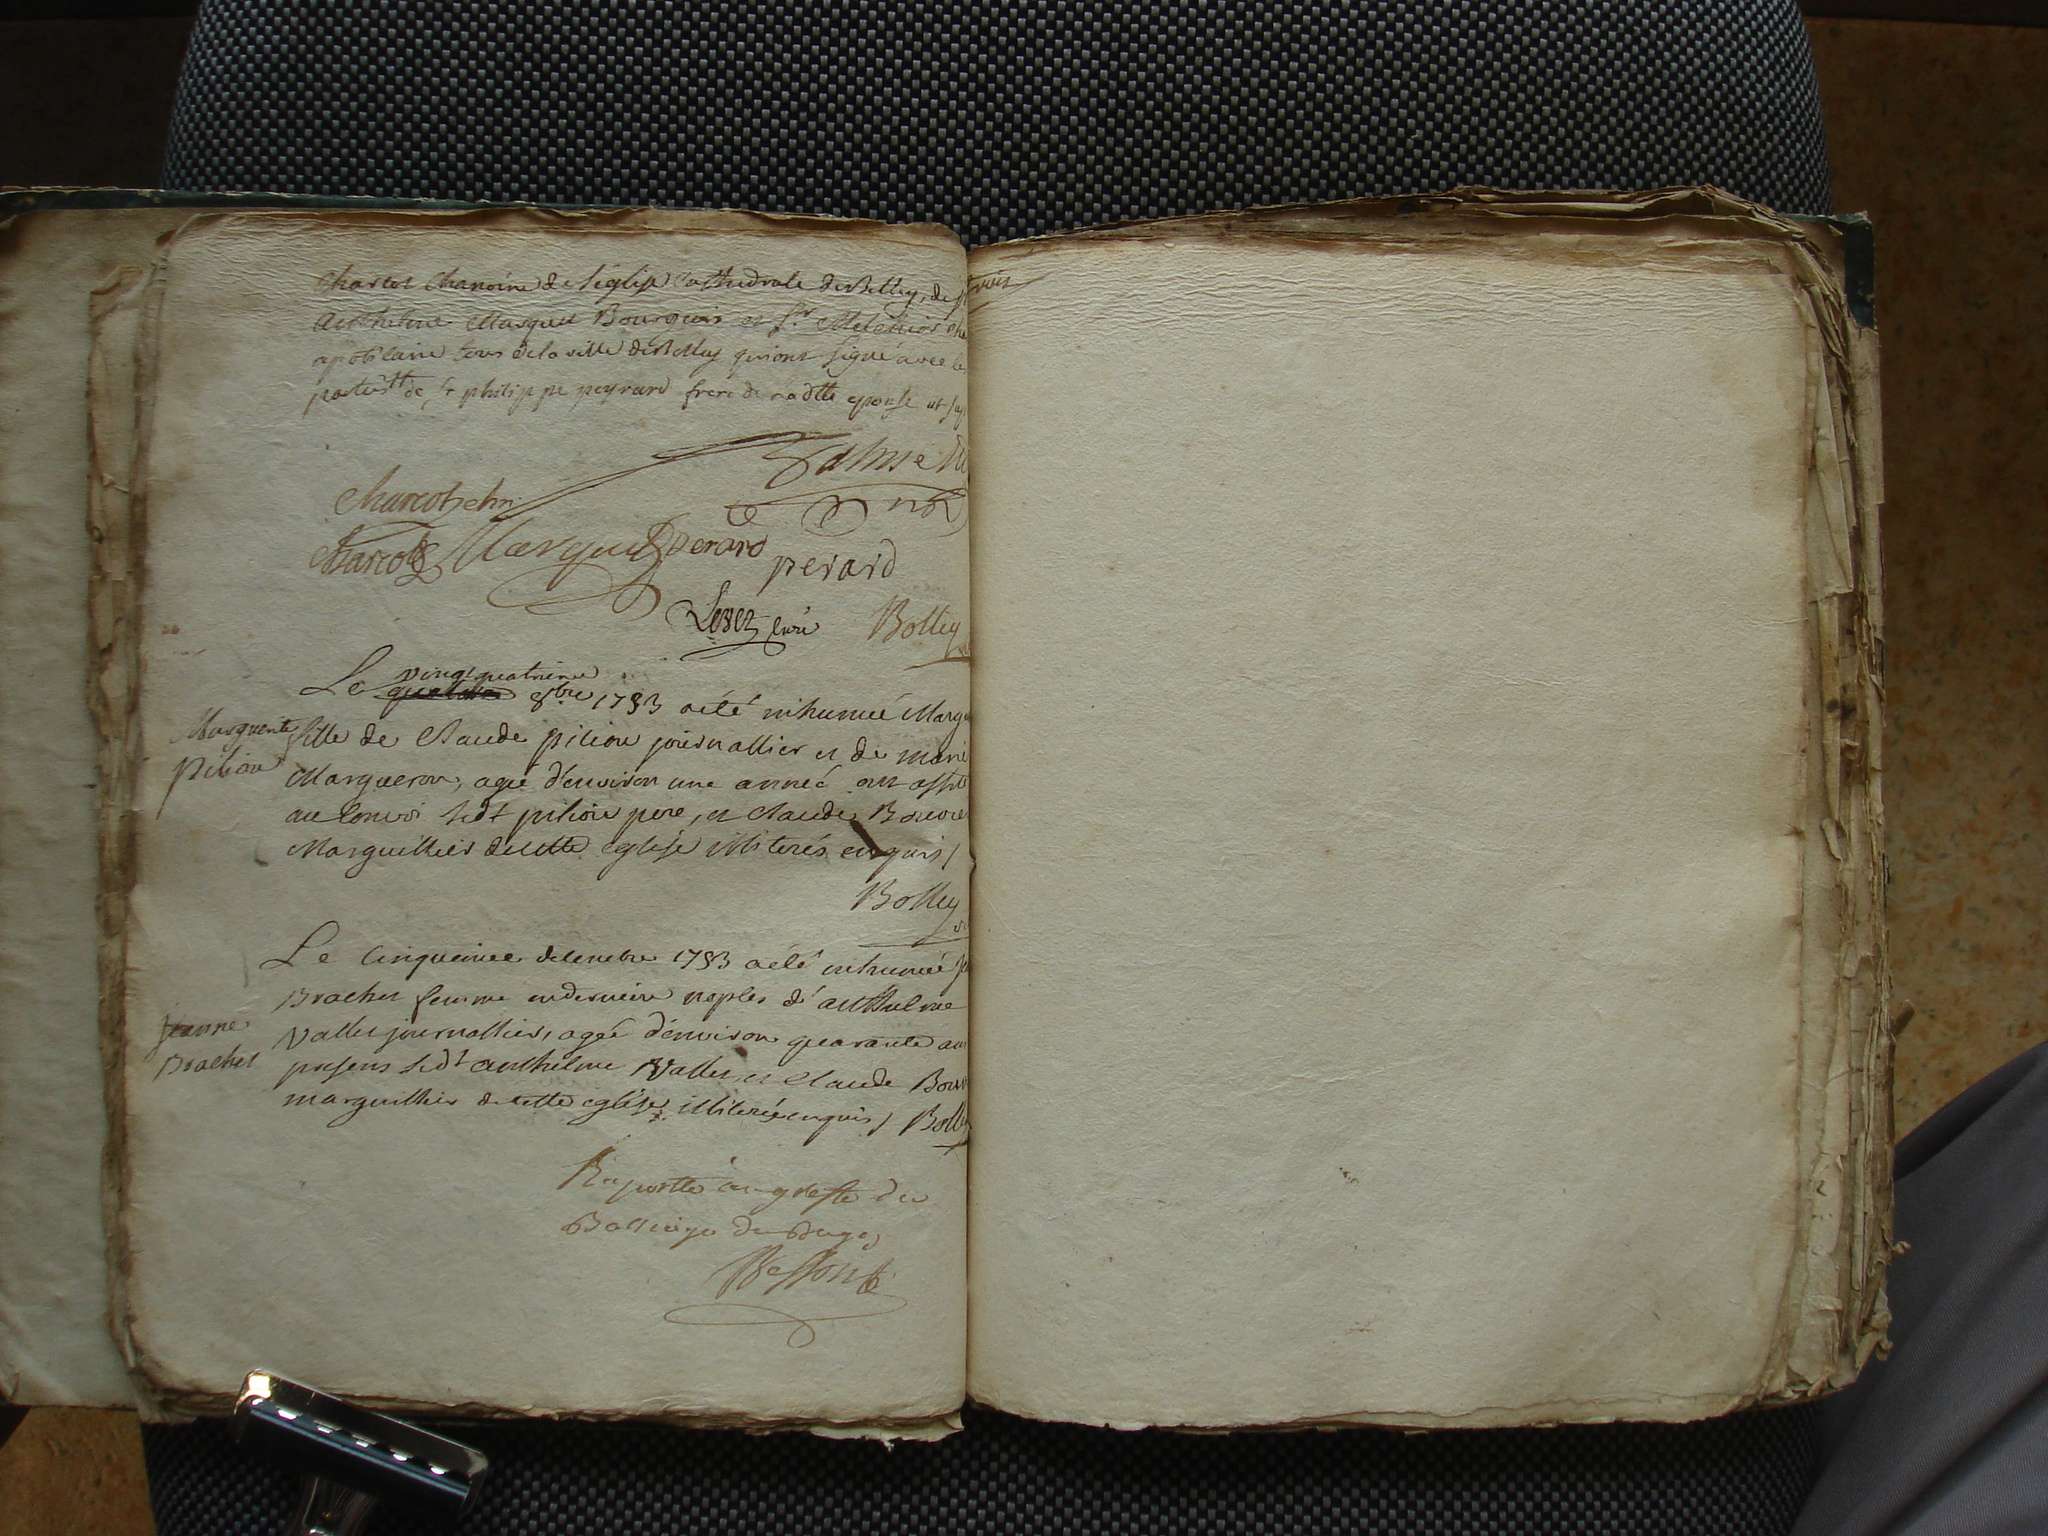 Chanoine de l'église Cathedrale de Belley, de
Anthelme Marquet Bourgeois et Sr. Melchior
apoticaire tous de la ville de Belley qui ont signé avec le
de Sr philippe peyrard frere de ladtte epouse et
Charcot chn
Charcot Marquet perard
perard
curé Bolley
vingt quatrieme
Le 8bre 1783 a été inhumée Marg
Marguerite
fille de Claude pition journallier et de marie
pition
Margueron, agé d'environ une année ont assisté
au Convoi ledt pition pere, et Claude
Marguillier de cette eglise illiterés enquis /
Bolley
Le Cinquieme decembre 1783 a été inhumée
Brachet femme en derniere noples d'anthelme
Jeanne
Vallet journallier, agée d'environ quarante ans
Brachet
presens ledt anthelme Vallet, et Claude
marguillier de cette eglise illiterés enquis / Bolley
Raporté au greffe du
Balliage du Bugey